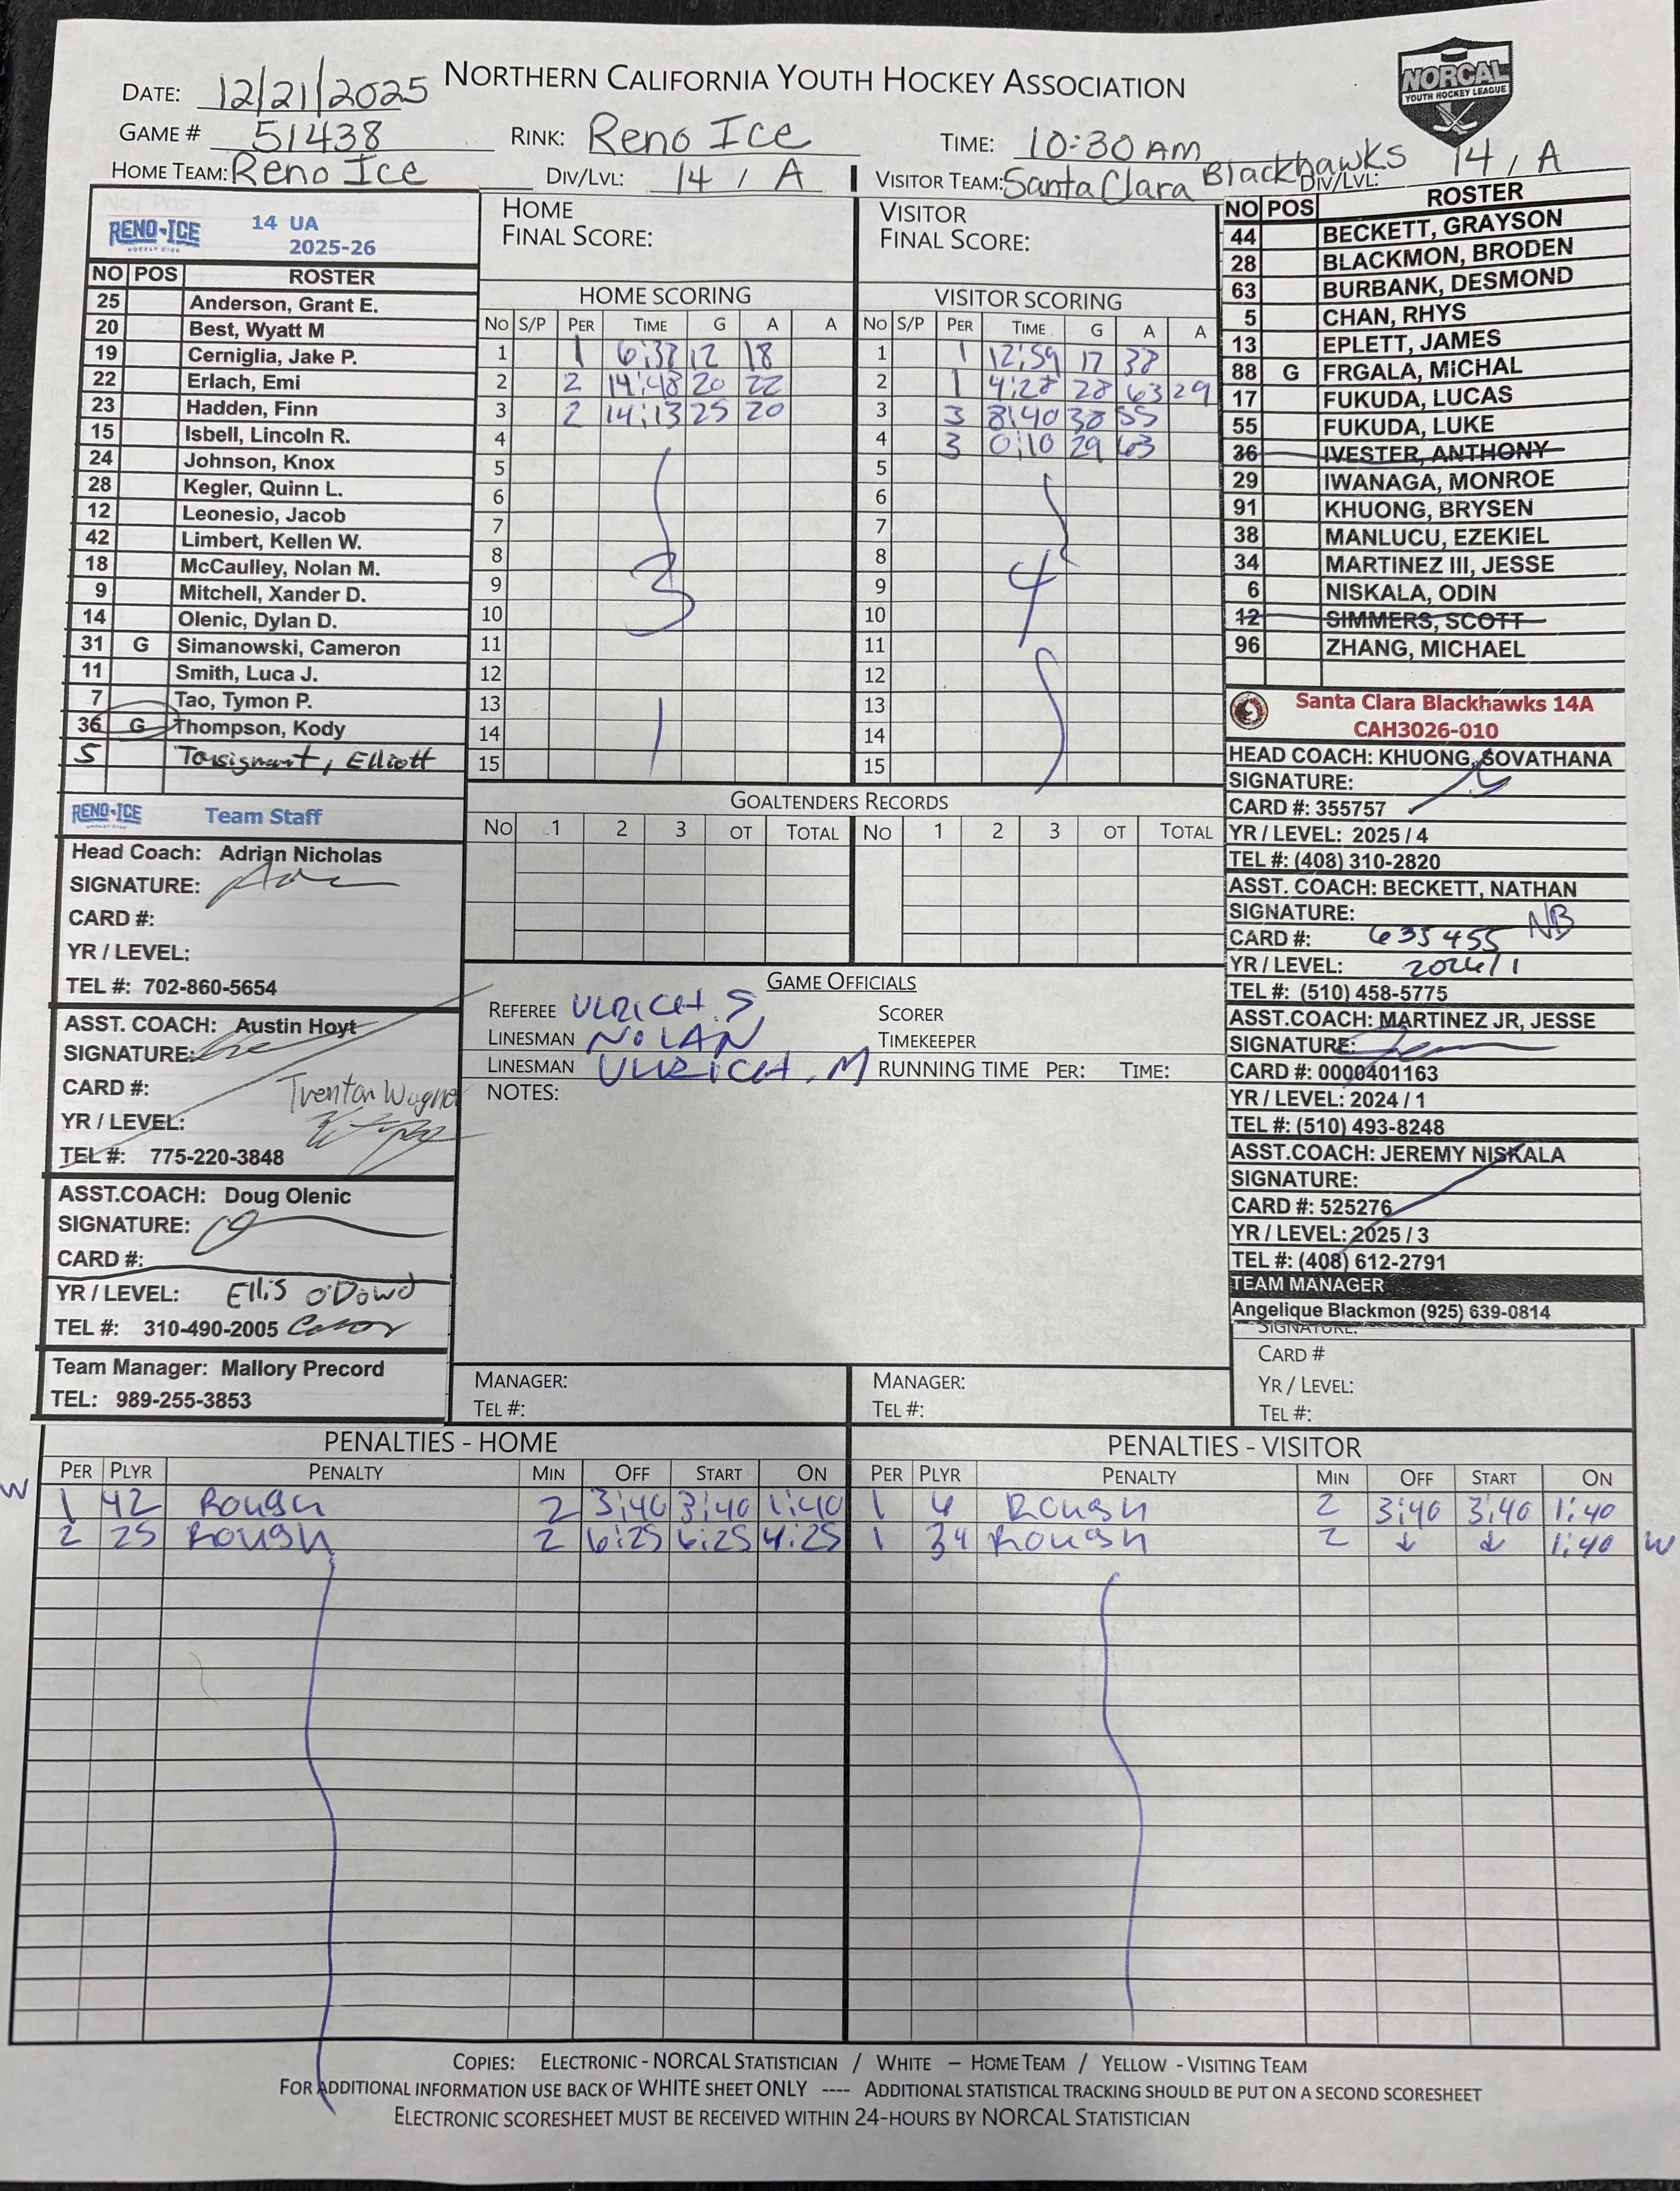 NORTHERN CALIFORNIA YOUTH HOCKEY ASSOCIATION
NORCAL
YOUTH HOCKEY LEAGUE
DATE: 12/21/2025
GAME # 51438 RINK: Reno Ice TIME: 10:30 AM
HOME TEAM: Reno Ice DIV/LVL: 14 / A VISITOR TEAM: Santa Clara Blackhawks DIV/LVL: 14 / A
RENO-ICE 14 UA
2025-26
NO POS ROSTER
25 Anderson, Grant E.
20 Best, Wyatt M
19 Cerniglia, Jake P.
22 Erlach, Emi
23 Hadden, Finn
15 Isbell, Lincoln R.
24 Johnson, Knox
28 Kegler, Quinn L.
12 Leonesio, Jacob
42 Limbert, Kellen W.
18 McCaulley, Nolan M.
9 Mitchell, Xander D.
14 Olenic, Dylan D.
31 G Simanowski, Cameron
11 Smith, Luca J.
7 Tao, Tymon P.
36 G Thompson, Kody
5 Elliott
RENO-ICE Team Staff
Head Coach: Adrian Nicholas
SIGNATURE:
CARD #:
YR / LEVEL:
TEL #: 702-860-5654
ASST. COACH: Austin Hoyt
SIGNATURE:
CARD #:
Trenton Wagner
YR / LEVEL:
TEL #: 775-220-3848
ASST.COACH: Doug Olenic
SIGNATURE:
CARD #:
YR / LEVEL: Ellis O'Dowd
TEL #: 310-490-2005
Team Manager: Mallory Precord
TEL: 989-255-3853
HOME
FINAL SCORE:
HOME SCORING
NO S/P PER TIME G A A
1 1 6:37 12 18
2 2 14:48 20 22
3 2 14:13 25 20
4
5
6
7
8
9
10
11
12
13
14
15
3
VISITOR
FINAL SCORE:
VISITOR SCORING
NO S/P PER TIME G A A
1 1 12:59 17 38
2 1 4:28 28 63 29
3 3 8:40 38 55
4 3 0:10 29 63
5
6
7
8
9
10
11
12
13
14
15
4
GOALTENDERS RECORDS
NO 1 2 3 OT TOTAL NO 1 2 3 OT TOTAL
GAME OFFICIALS
REFEREE ULRICH. S SCORER
LINESMAN NOLAN TIMEKEEPER
LINESMAN ULRICH. M RUNNING TIME PER: TIME:
NOTES:
MANAGER: MANAGER:
TEL #: TEL #:
NO POS ROSTER
44 BECKETT, GRAYSON
28 BLACKMON, BRODEN
63 BURBANK, DESMOND
5 CHAN, RHYS
13 EPLETT, JAMES
88 G FRGALA, MICHAL
17 FUKUDA, LUCAS
55 FUKUDA, LUKE
36 IVESTER, ANTHONY
29 IWANAGA, MONROE
91 KHUONG, BRYSEN
38 MANLUCU, EZEKIEL
34 MARTINEZ III, JESSE
6 NISKALA, ODIN
12 SIMMERS, SCOTT
96 ZHANG, MICHAEL
Santa Clara Blackhawks 14A
CAH3026-010
HEAD COACH: KHUONG, SOVATHANA
SIGNATURE:
CARD #: 355757
YR / LEVEL: 2025 / 4
TEL #: (408) 310-2820
ASST. COACH: BECKETT, NATHAN
SIGNATURE: NB
CARD #: 635455
YR / LEVEL: 2024/1
TEL #: (510) 458-5775
ASST.COACH: MARTINEZ JR, JESSE
SIGNATURE:
CARD #: 0000401163
YR / LEVEL: 2024 / 1
TEL #: (510) 493-8248
ASST.COACH: JEREMY NISKALA
SIGNATURE:
CARD #: 525276
YR / LEVEL: 2025 / 3
TEL #: (408) 612-2791
TEAM MANAGER
Angelique Blackmon (925) 639-0814
SIGNATURE:
CARD #
YR / LEVEL:
TEL #:
PENALTIES - HOME
PER PLYR PENALTY MIN OFF START ON
W 1 42 Rough 2 3:40 3:40 1:40
2 25 Rough 2 6:25 6:25 4:25
PENALTIES - VISITOR
PER PLYR PENALTY MIN OFF START ON
1 6 Rough 2 3:40 3:40 1:40
1 34 Rough 2 ↓ ↓ 1:40 W
COPIES: ELECTRONIC - NORCAL STATISTICIAN / WHITE – HOME TEAM / YELLOW - VISITING TEAM
FOR ADDITIONAL INFORMATION USE BACK OF WHITE SHEET ONLY ---- ADDITIONAL STATISTICAL TRACKING SHOULD BE PUT ON A SECOND SCORESHEET
ELECTRONIC SCORESHEET MUST BE RECEIVED WITHIN 24-HOURS BY NORCAL STATISTICIAN